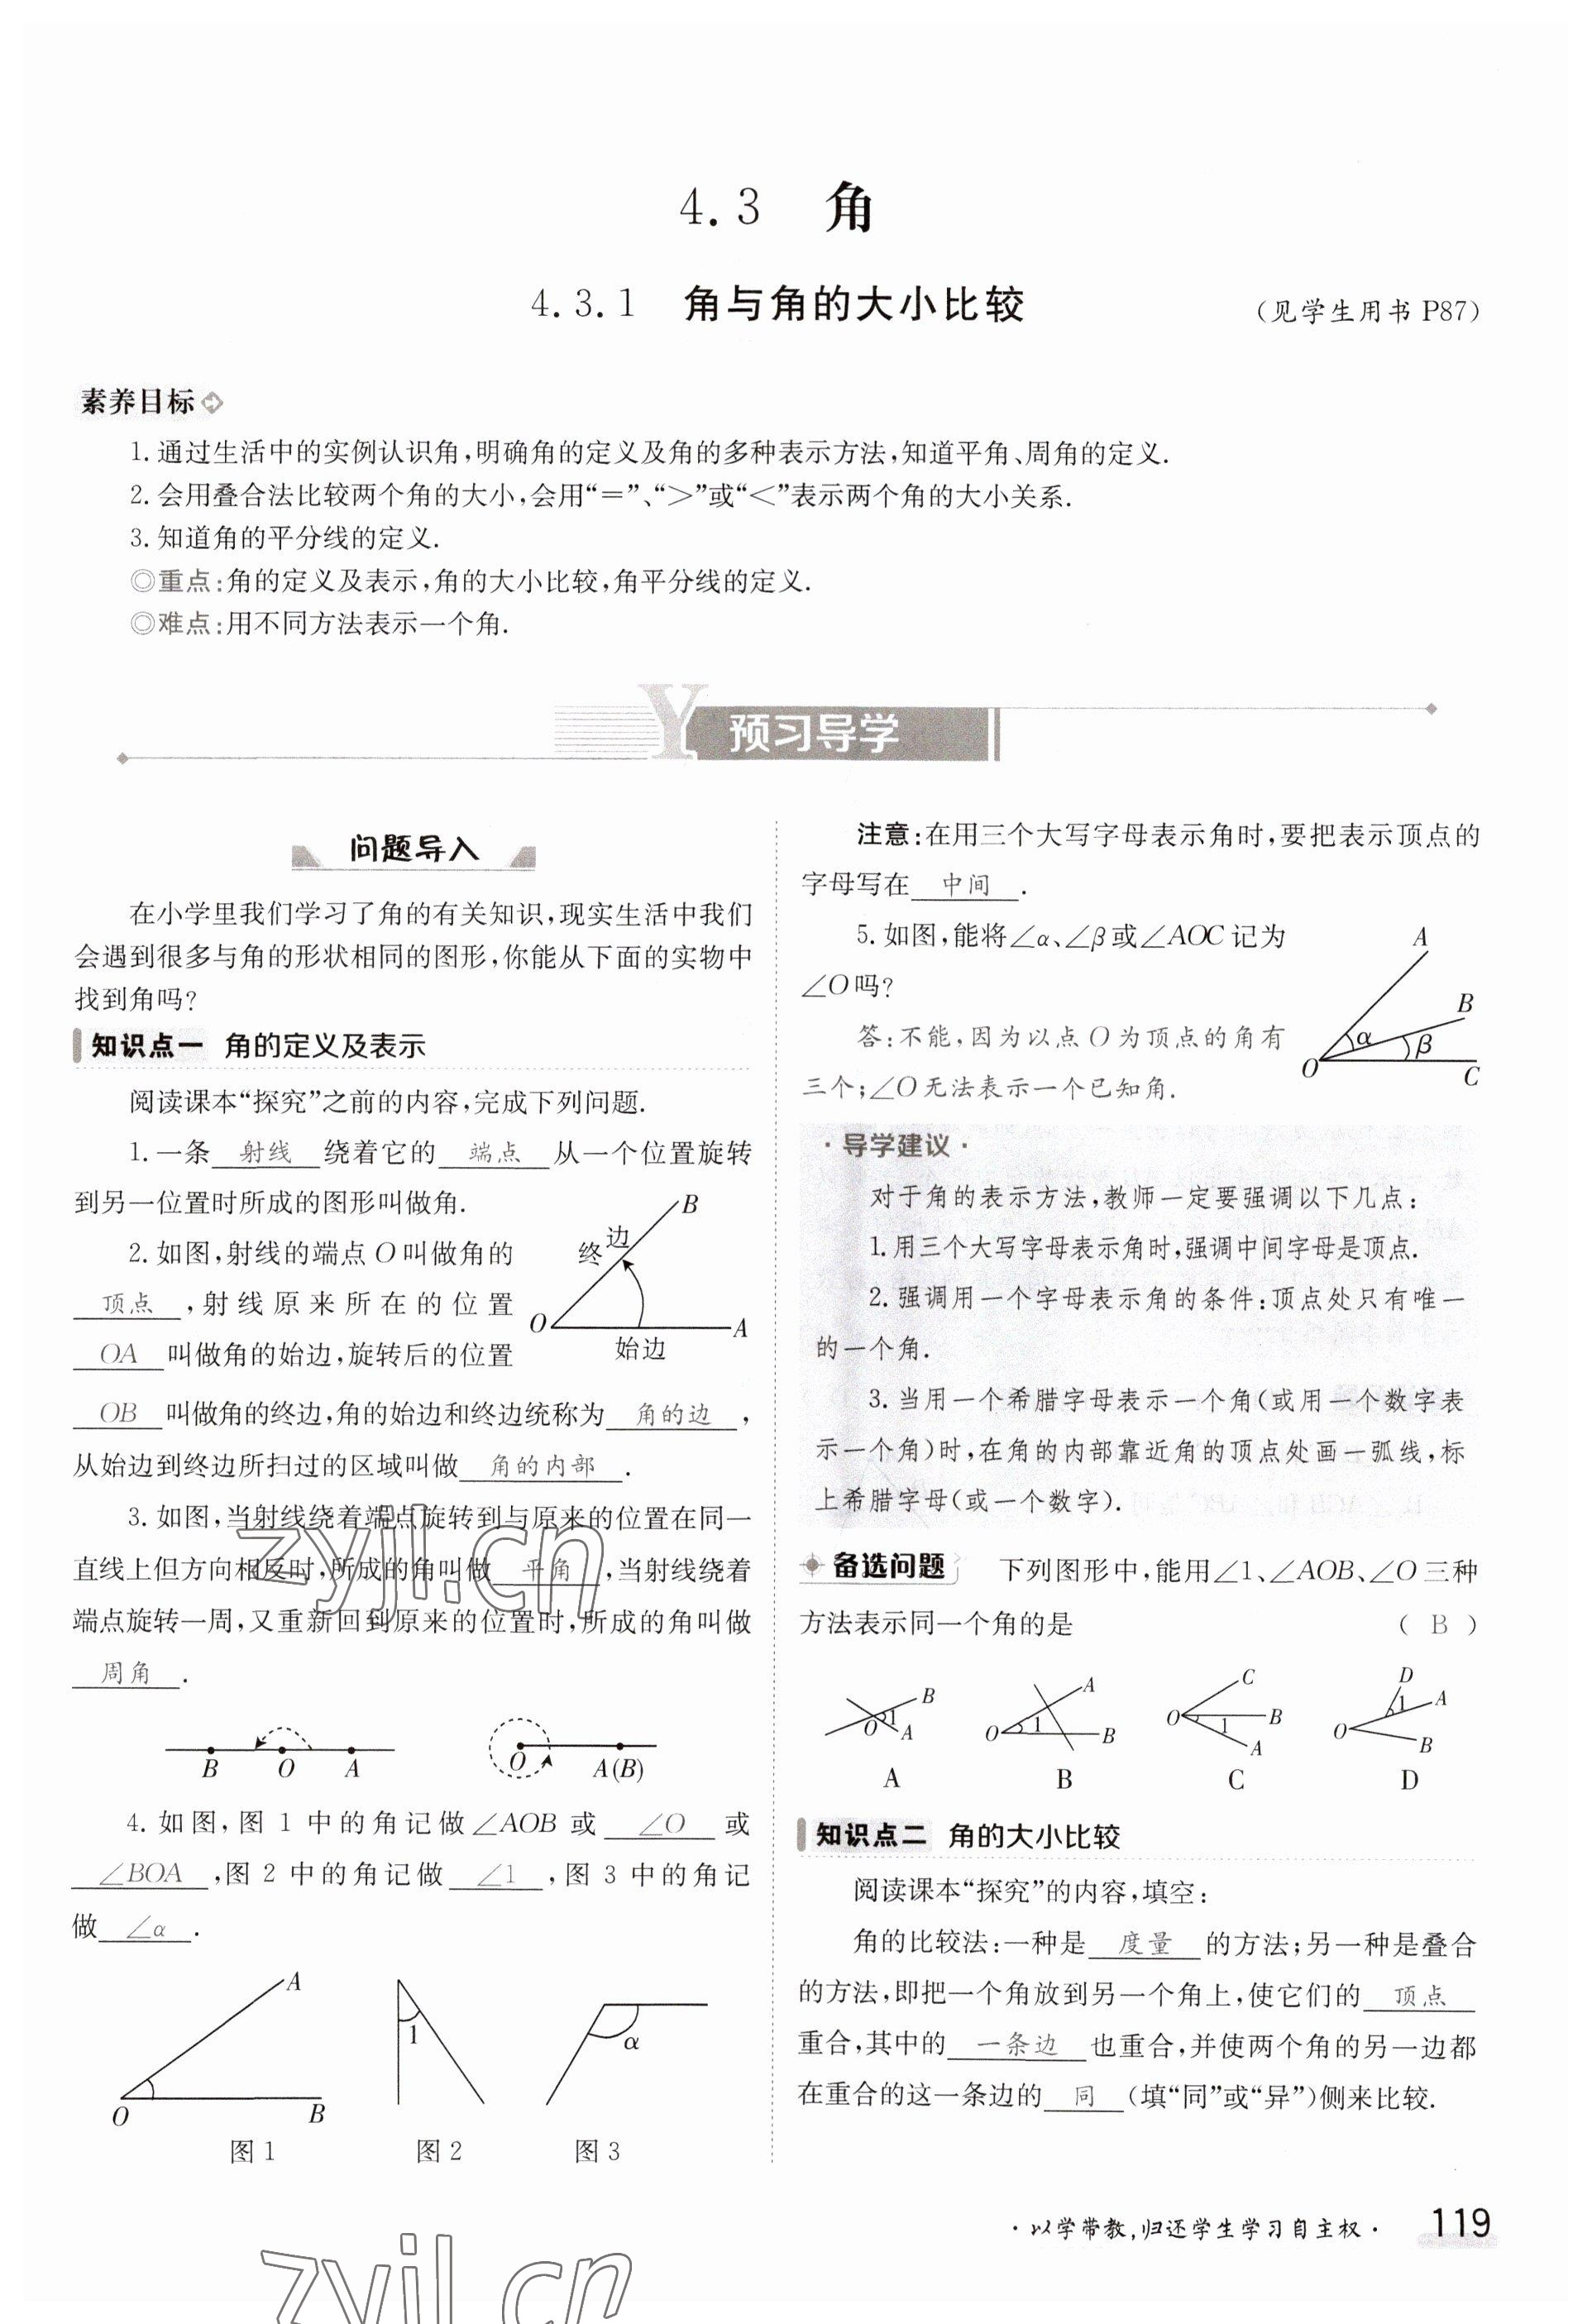 4.3 角
4.3.1 角与角的大小比较 (见学生用书 P87)
素养目标
1. 通过生活中的实例认识角,明确角的定义及角的多种表示方法,知道平角、周角的定义.
2. 会用叠合法比较两个角的大小,会用“=”、“>”或“<”表示两个角的大小关系.
3. 知道角的平分线的定义.
◎重点:角的定义及表示,角的大小比较,角平分线的定义.
◎难点:用不同方法表示一个角.
Y 预习导学
问题导入
在小学里我们学习了角的有关知识,现实生活中我们
会遇到很多与角的形状相同的图形,你能从下面的实物中
找到角吗?
知识点一 角的定义及表示
阅读课本“探究”之前的内容,完成下列问题.
1. 一条 射线 绕着它的 端点 从一个位置旋转
到另一位置时所成的图形叫做角.
2. 如图,射线的端点 O 叫做角的
顶点 ,射线原来所在的位置
OA 叫做角的始边,旋转后的位置
B
终边
O
A
始边
OB 叫做角的终边,角的始边和终边统称为 角的边 ,
从始边到终边所扫过的区域叫做 角的内部 .
3. 如图,当射线绕着端点旋转到与原来的位置在同一
直线上但方向相反时,所成的角叫做 平角 ,当射线绕着
端点旋转一周,又重新回到原来的位置时,所成的角叫做
周角 .
B O A O A(B)
4. 如图,图 1 中的角记做∠AOB 或 ∠O 或
∠BOA ,图 2 中的角记做 ∠1 ,图 3 中的角记
做 ∠α .
A
1 α
O B
图 1 图 2 图 3
注意:在用三个大写字母表示角时,要把表示顶点的
字母写在 中间 .
5. 如图,能将∠α、∠β或∠AOC 记为
∠O 吗?
A
B
α
β
O
C
答:不能,因为以点 O 为顶点的角有
三个;∠O 无法表示一个已知角.
· 导学建议 ·
对于角的表示方法,教师一定要强调以下几点:
1. 用三个大写字母表示角时,强调中间字母是顶点.
2. 强调用一个字母表示角的条件:顶点处只有唯一
的一个角.
3. 当用一个希腊字母表示一个角(或用一个数字表
示一个角)时,在角的内部靠近角的顶点处画一弧线,标
上希腊字母(或一个数字).
备选问题 下列图形中,能用∠1、∠AOB、∠O 三种
方法表示同一个角的是 ( B )
B O 1 A
A O 1 B
C O B 1 A
D 1 A O B
A B C D
知识点二 角的大小比较
阅读课本“探究”的内容,填空:
角的比较法:一种是 度量 的方法;另一种是叠合
的方法,即把一个角放到另一个角上,使它们的 顶点
重合,其中的 一条边 也重合,并使两个角的另一边都
在重合的这一条边的 同 (填“同”或“异”)侧来比较.
· 以学带教,归还学生学习自主权 · 119
zyjl.cn
zyjl.cn